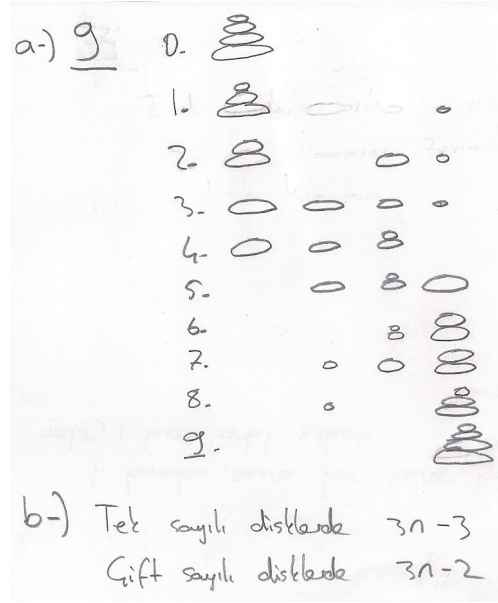 a-) 9 0.
1.
2.
3.
4.
5.
6.
7.
8.
9.
b-) Tek sayılı disklerde 3n-3
Çift sayılı disklerde 3n-2